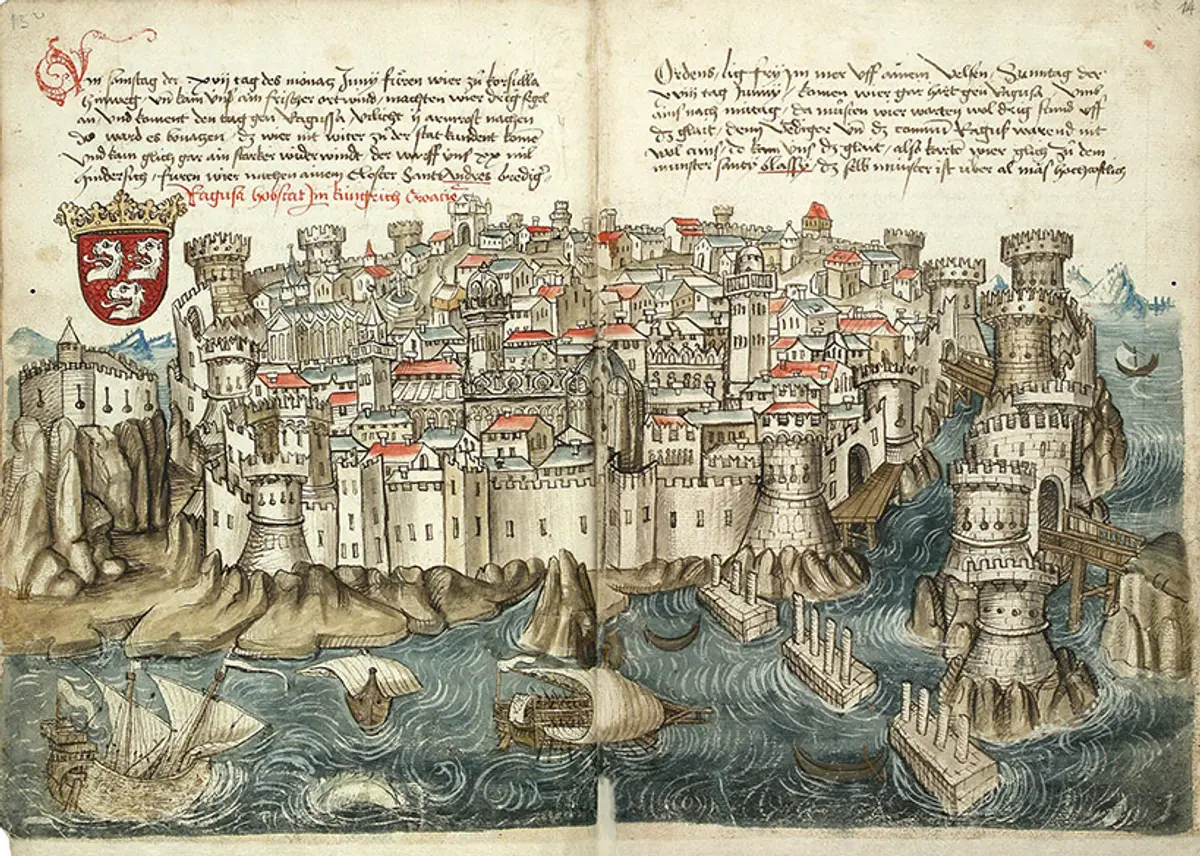 Am samstag der xvij tag des monatz Junij füren wier zu korsulla
hinweg vn kam vnß ain frischer ort wind machten wier drig segel
an vnd koment den tag gen Ragussa vilicht ij armrost
do ward es das wier nit witer zu der stat kundent komen
vnd kam glich gar ain starker wider windt der warff vnß xxx mil
hindersich füren wier nachen ainem Closter Sant Andres bredig
Ragusa hobstat Jm küngrich Croacie
Ordens lig fry jm mer vff ainem velsen Sunntag der
xviij tag Junij komen wier gar hart gen Ragusa vmb
ains nach mittag da müsten wier warten wol drig stund vff
dz glait denn Venediger vn dz comun Raguß warend nit
wol ains do kam vns dz glait also kartt wier glich zu dem
münster santt blassy dz selb münster ist über al maß
13
14